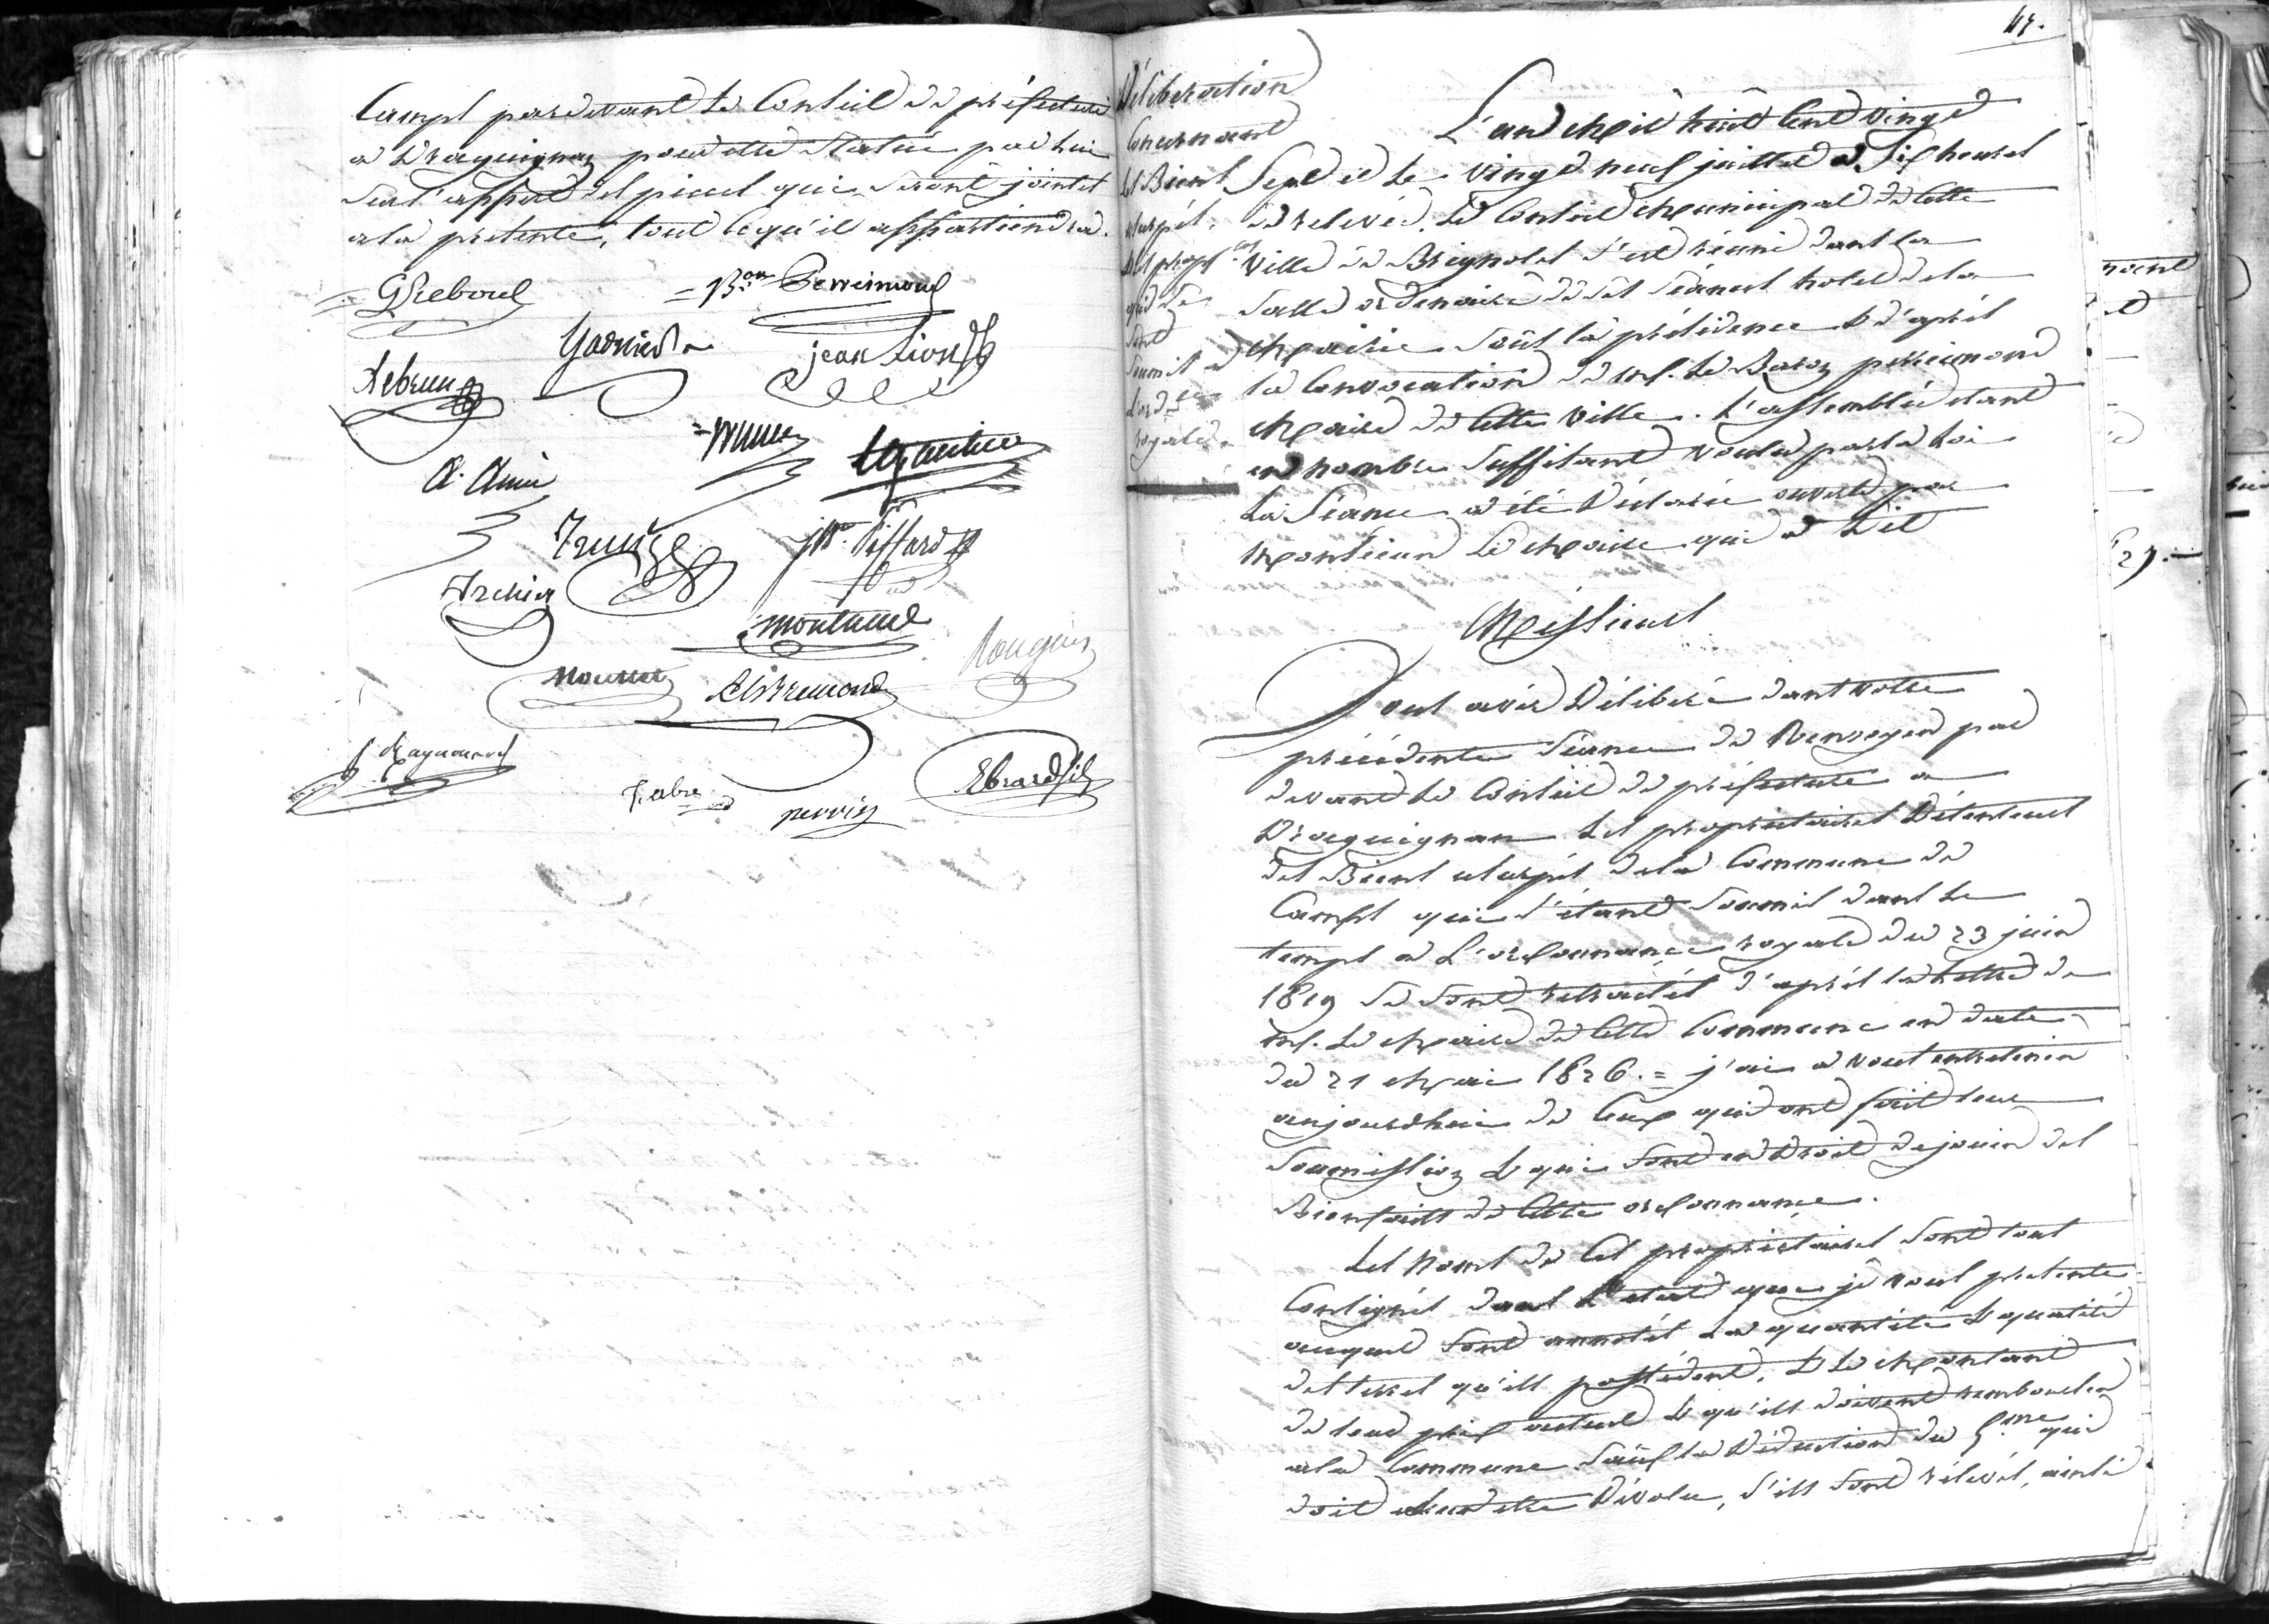 Camps pardevant le Conseil de préfecture
a Draguignan pour etre Statué par lui
Sur l'exposé des pieces qui seront jointes
ala presente, tout ce qu'il appartiendra.
G Reboul
Bon Perreimond
Lebrun
Garnier
jean Lion
A. Amic
Jh. Piffard
Archier
montaud
Rougier
Bremond
Raynouard
Fabre
perrin
Ebrard fils
47.
Délibération
Concernant
Les Biens
usurpés,
des propres
qui se
Sont
Soumis a
l'ordce
royale.
L'an Mil huit Cent vingt
Sept et le vingt neuf juillet a Six heures
de relevée, le Conseil Municipal de Cette
Ville de Brignoles s'est réuni dans la
Salle ordinaire de ses Séances hotel dela
Mairie Sous la présidence & d'après
la Convocation de M. le Baron perreimond
Maire de Cette Ville. L'assemblée étant
en nombre Suffisant voulu par la Loi
La Séance a été Déclarée ouverte par
Monsieur le Maire qui a Dit
Messieurs
Vous avés Délibéré dans votre
précédente Séance de Renvoyer par
devant le Conseil de préfecture a
Draguignan Les propriétaires Détenteurs
des Biens usurpés dela Commune de
Camps qui s'étant Soumis dans le
temps a L'ordonnance royale du 23 juin
1819 Se Sont retractés d'après la Lettre de
M. Le Maire de Cette Commune en date
du 21 Mai 1826. = j'ai a vous entretenir
aujourdhui de Ceux qui ont fait leur
Soumission & qui Sont en Droit de jouir des
Bienfaits de Cette ordonnance.
Les Noms de Ces propriétaires Sont tous
Consignés dans L'etat que je vous présente
auquel Sont annotés La quantité & qualité
des terres qu'ils possèdent, & le Montant
de leur prix actuel & qu'ils doivent rembourser
ala Commune Sauf la Déduction du 5me qui
doit leur etre Dévolu, s'ils Sont rélevés, ainsi